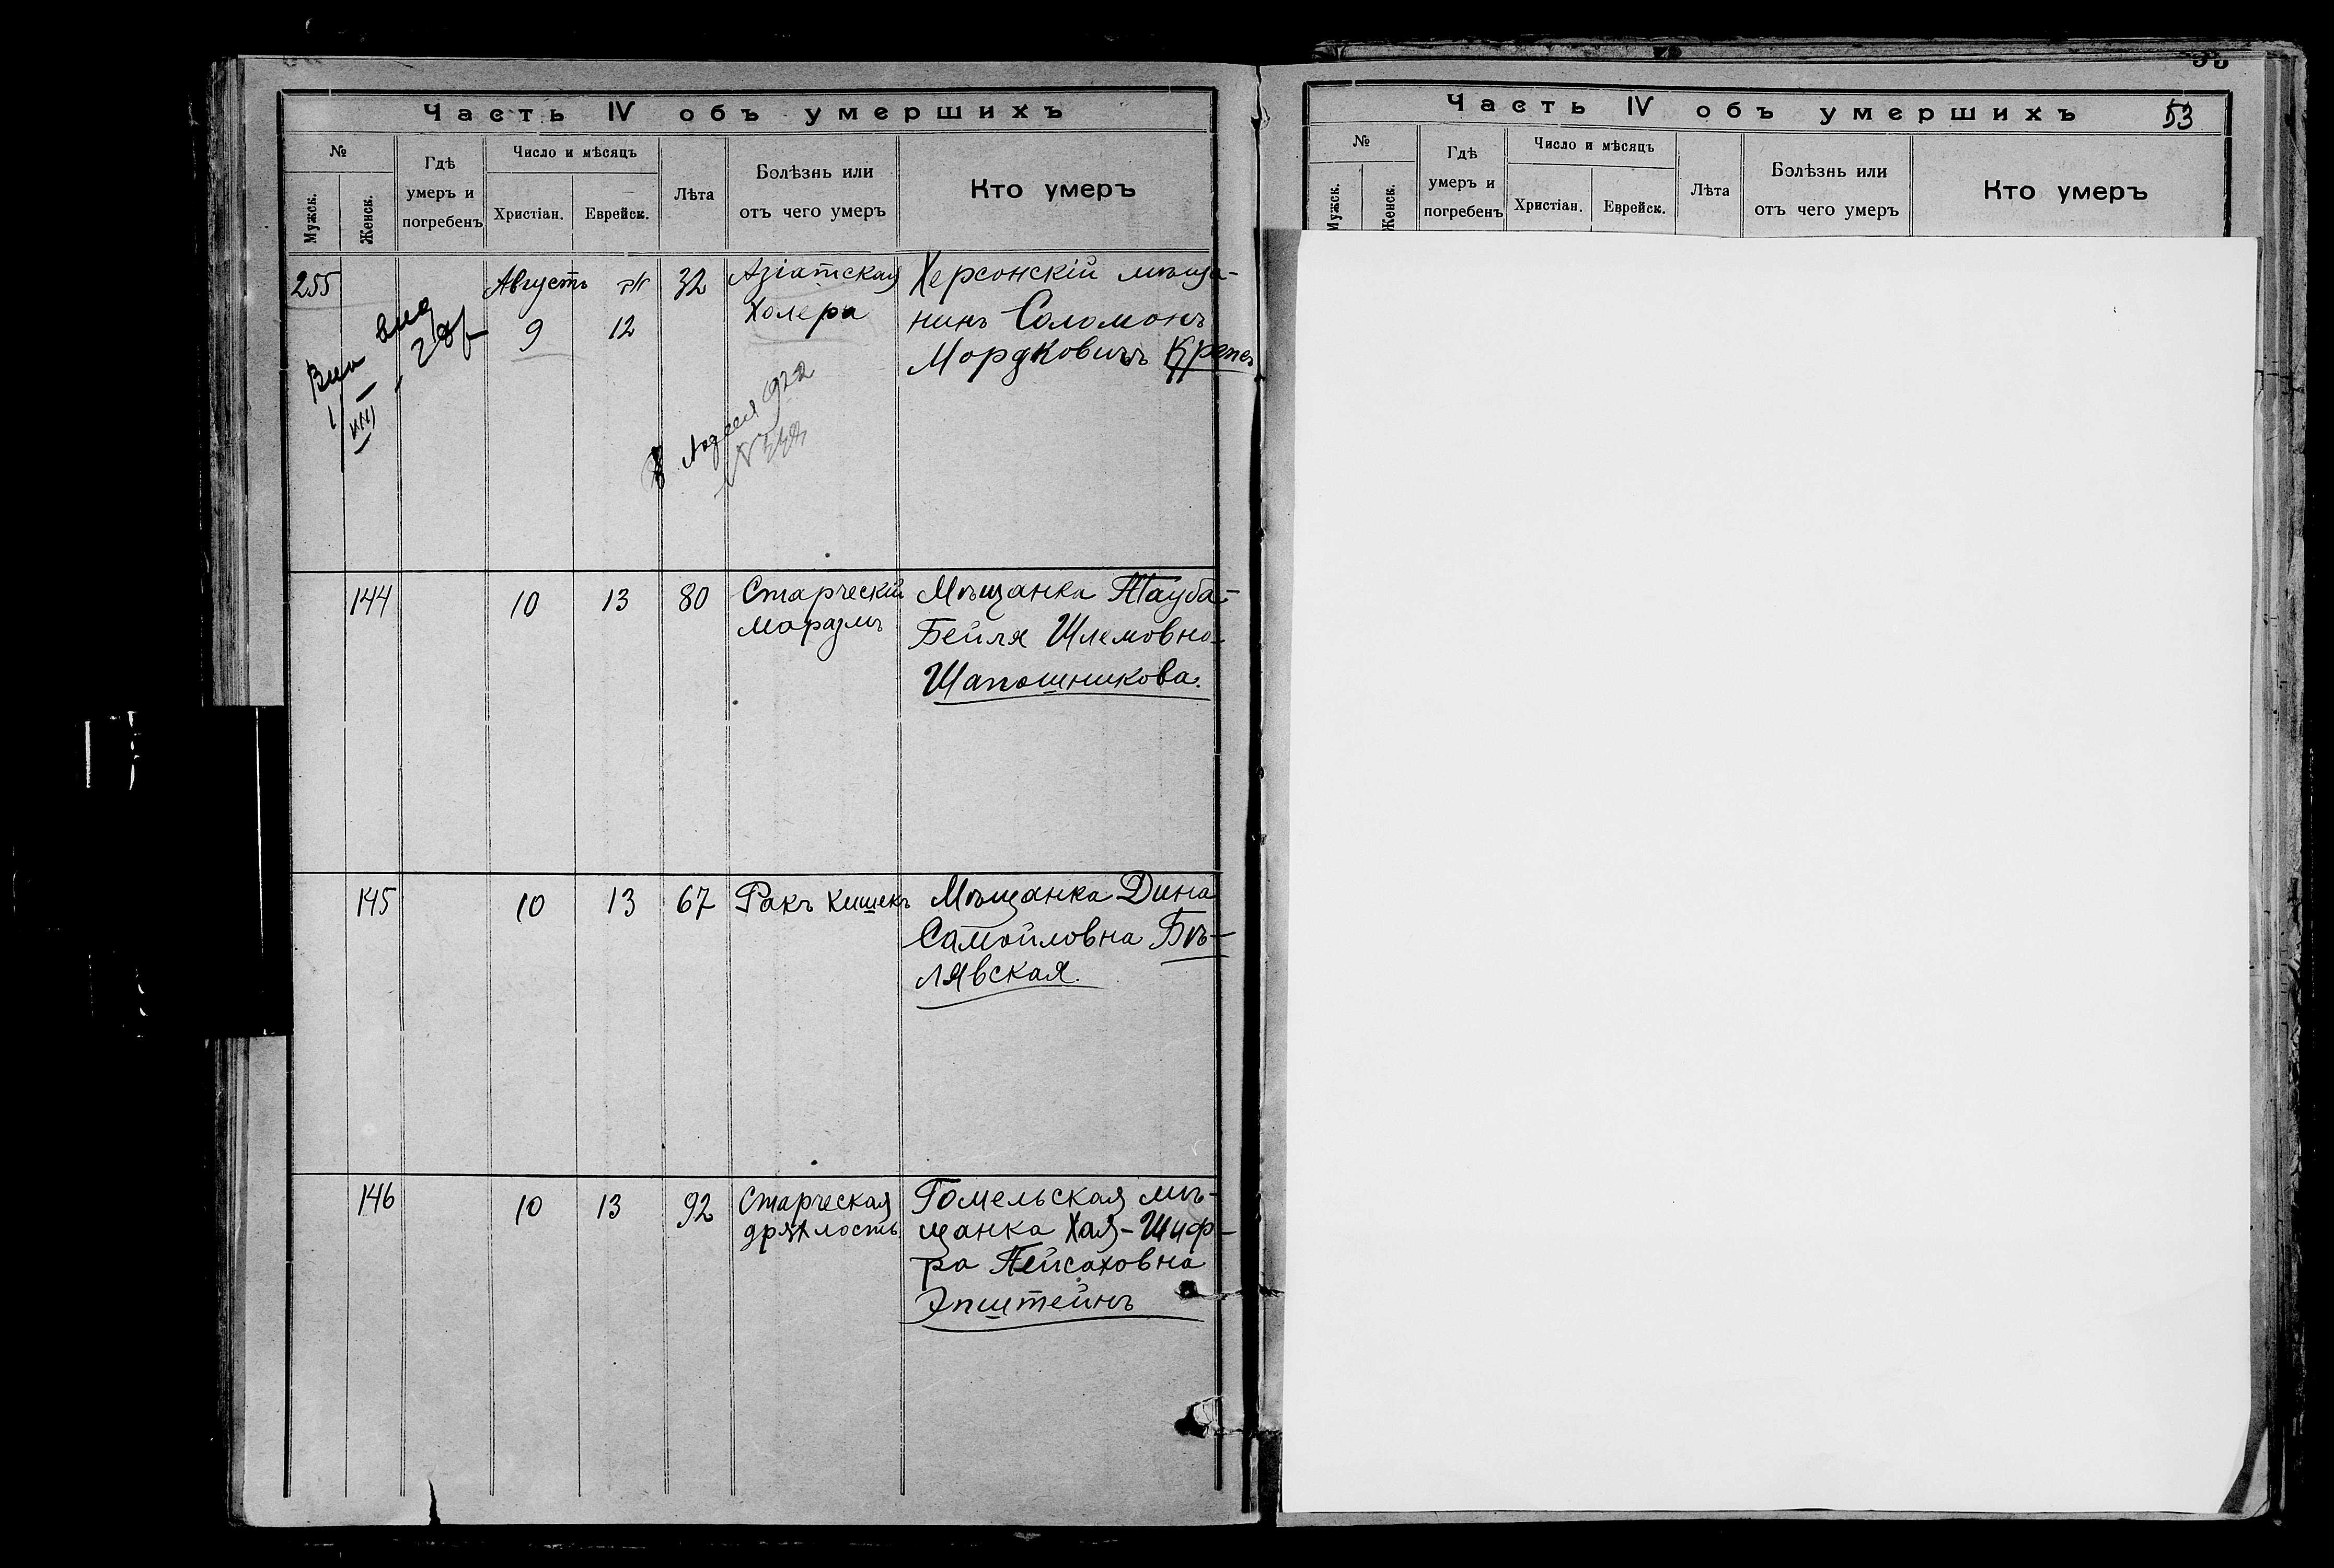 Часть IV объ умершихъ
№
Мужск.
Женск.
Гдѣ
умеръ и
погребенъ
Число и мѣсяцъ
Христіан.
Еврейск.
Лѣта
Болѣзнь или
отъ чего умеръ
Кто умеръ
255
Августъ
9
12
32
Азіатская
Холера
Херсонскій мѣща-
нинъ Соломонъ
Мордковичъ
1922
144
10
13
80
Старческій
Маразмъ
Мѣщанка Тауба-
Бейля Шлемовна
Шапошникова.
145
10
13
67
Ракъ кишекъ
Мѣщанка Дина
Самойловна Бѣ-
лявская.
146
10
13
92
Старческая
дряхлость
Гомельская мѣ-
щанка Хая-Шиф-
ра Пейсаховна
Эпштейнъ
Часть IV объ умершихъ
53
№
Мужск.
Женск.
Гдѣ
умеръ и
погребенъ
Число и мѣсяцъ
Христіан.
Еврейск.
Лѣта
Болѣзнь или
отъ чего умеръ
Кто умеръ